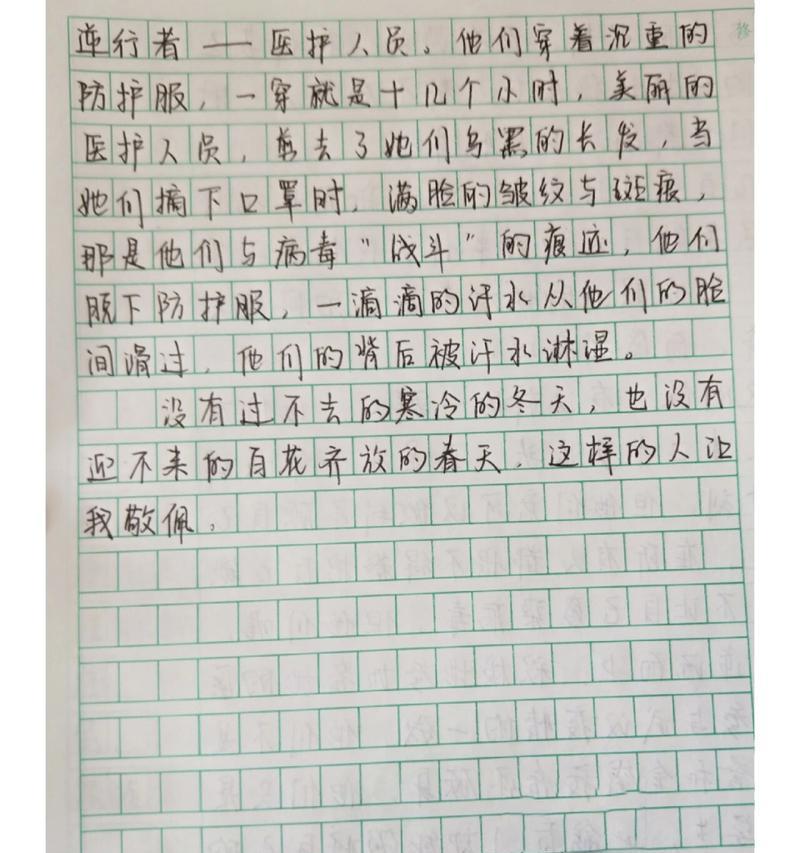 逆行者——医护人员。他们穿着沉重的
防护服，一穿就是十几个小时，美丽的
医护人员，剪去了她们乌黑的长发，当
她们摘下口罩时，满脸的皱纹与斑痕，
那是他们与病毒“战斗”的痕迹，他们
脱下防护服，一滴滴的汗水从他们的脸
间滑过，他们的背后被汗水淋湿。
没有过不去的寒冷的冬天，也没有
迎不来的百花齐放的春天，这样的人让
我敬佩。